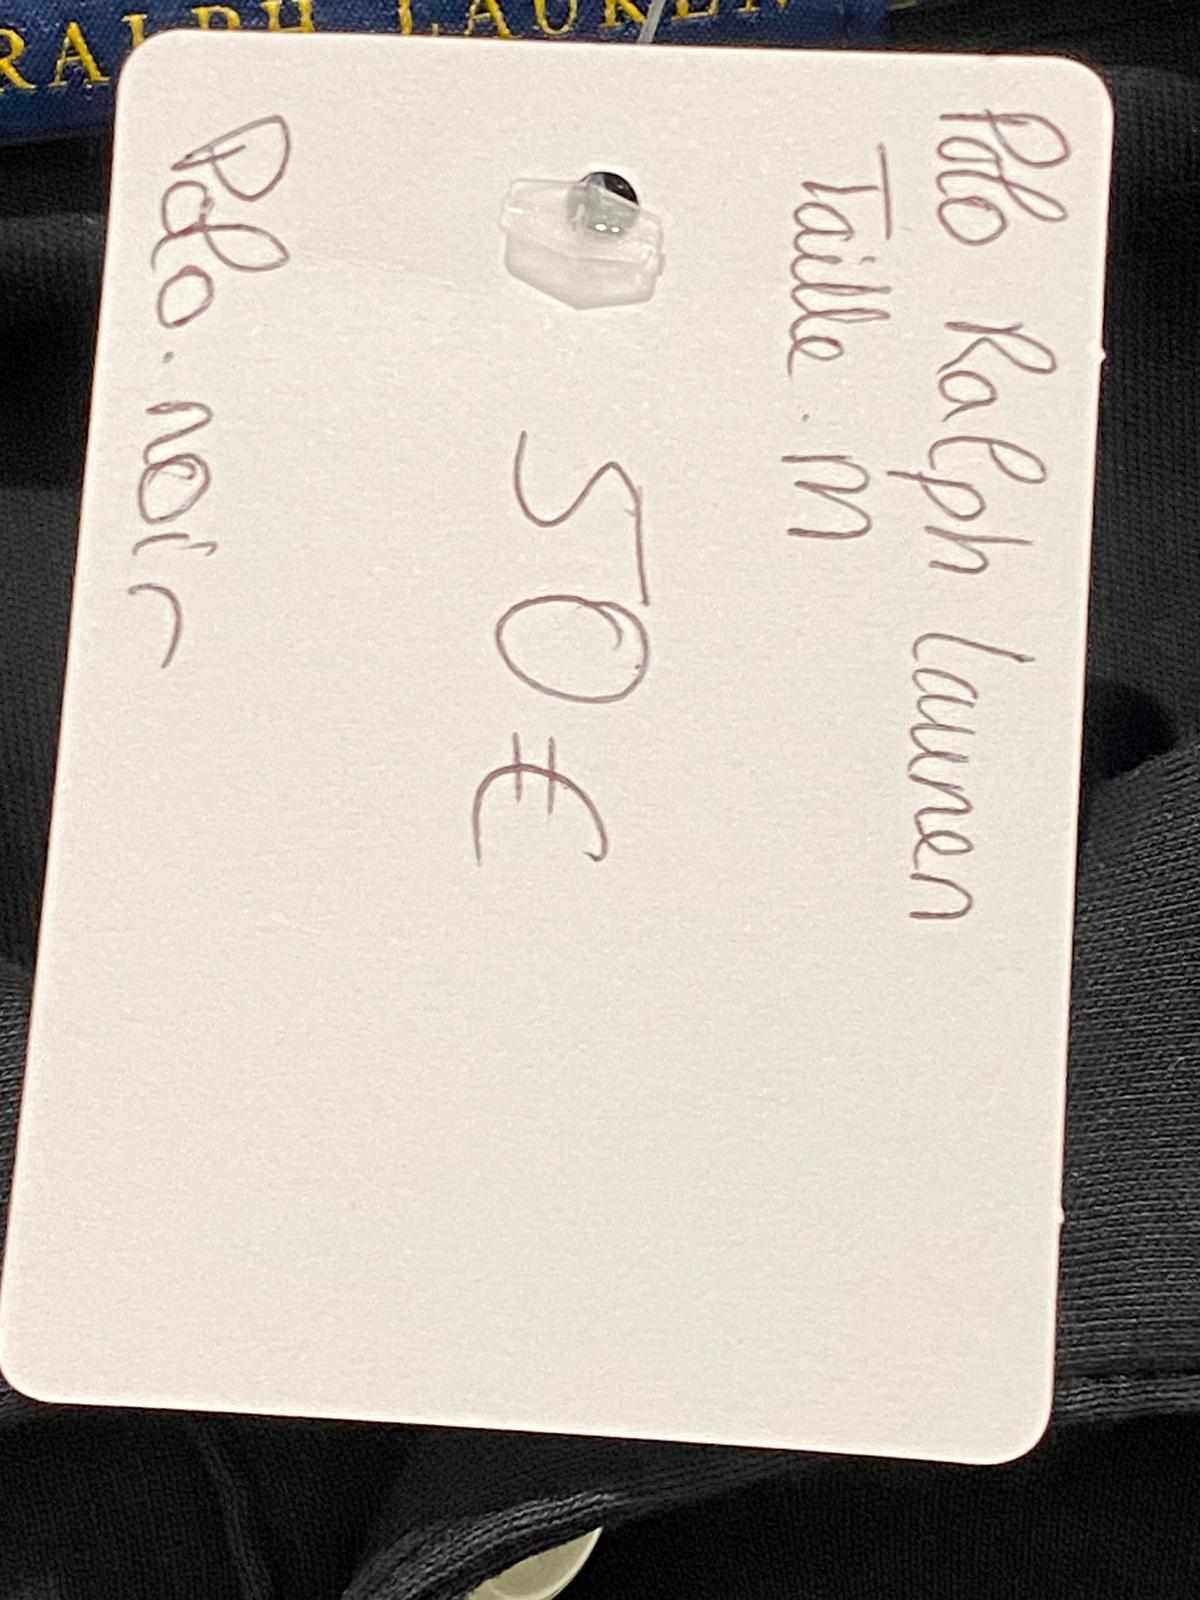 RALPH LAUREN
Polo Ralph Lauren
Taille. M
50 €
Polo. noir